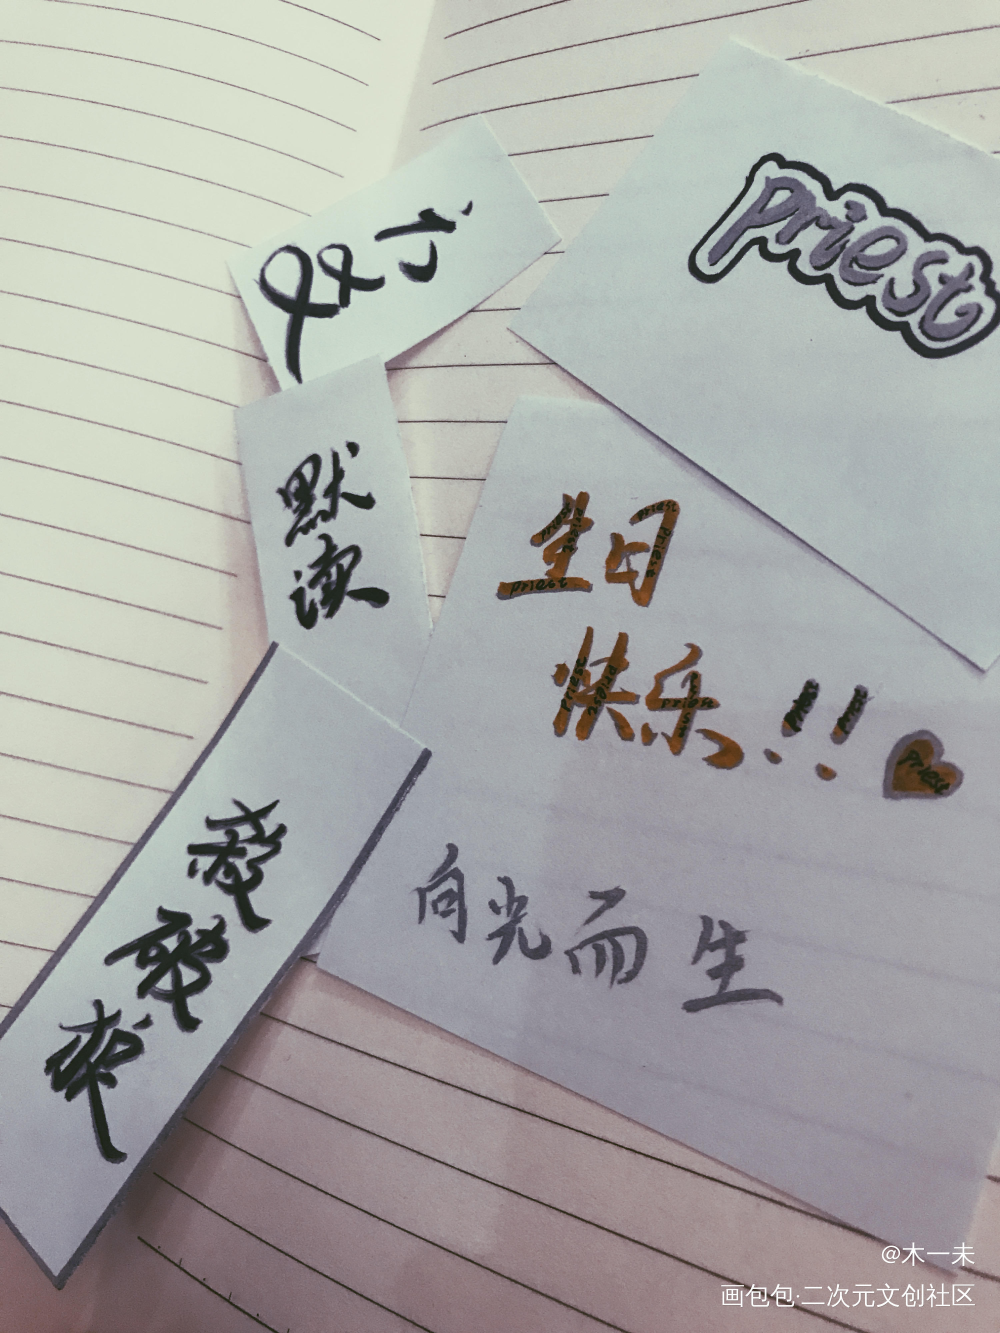 priest
默读
生日
快乐!!
priest
向光而生
杀破狼
@木一未
画包包·二次元文创社区